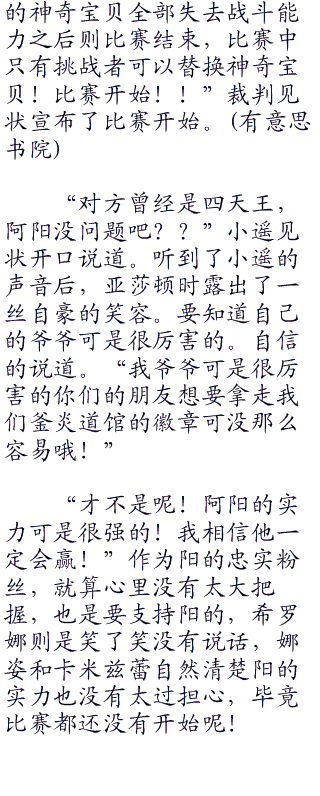 的神奇宝贝全部失去战斗能
力之后则比赛结束，比赛中
只有挑战者可以替换神奇宝
贝！比赛开始！！”裁判见
状宣布了比赛开始。(有意思
书院)
“对方曾经是四天王，
阿阳没问题吧？？”小遥见
状开口说道。听到了小遥的
声音后，亚莎顿时露出了一
丝自豪的笑容。要知道自己
的爷爷可是很厉害的。自信
的说道。“我爷爷可是很厉
害的你们的朋友想要拿走我
们釜炎道馆的徽章可没那么
容易哦！”
“才不是呢！阿阳的实
力可是很强的！我相信他一
定会赢！”作为阳的忠实粉
丝，就算心里没有太大把
握，也是要支持阳的，希罗
娜则是笑了笑没有说话，娜
姿和卡米兹蕾自然清楚阳的
实力也没有太过担心，毕竟
比赛都还没有开始呢！